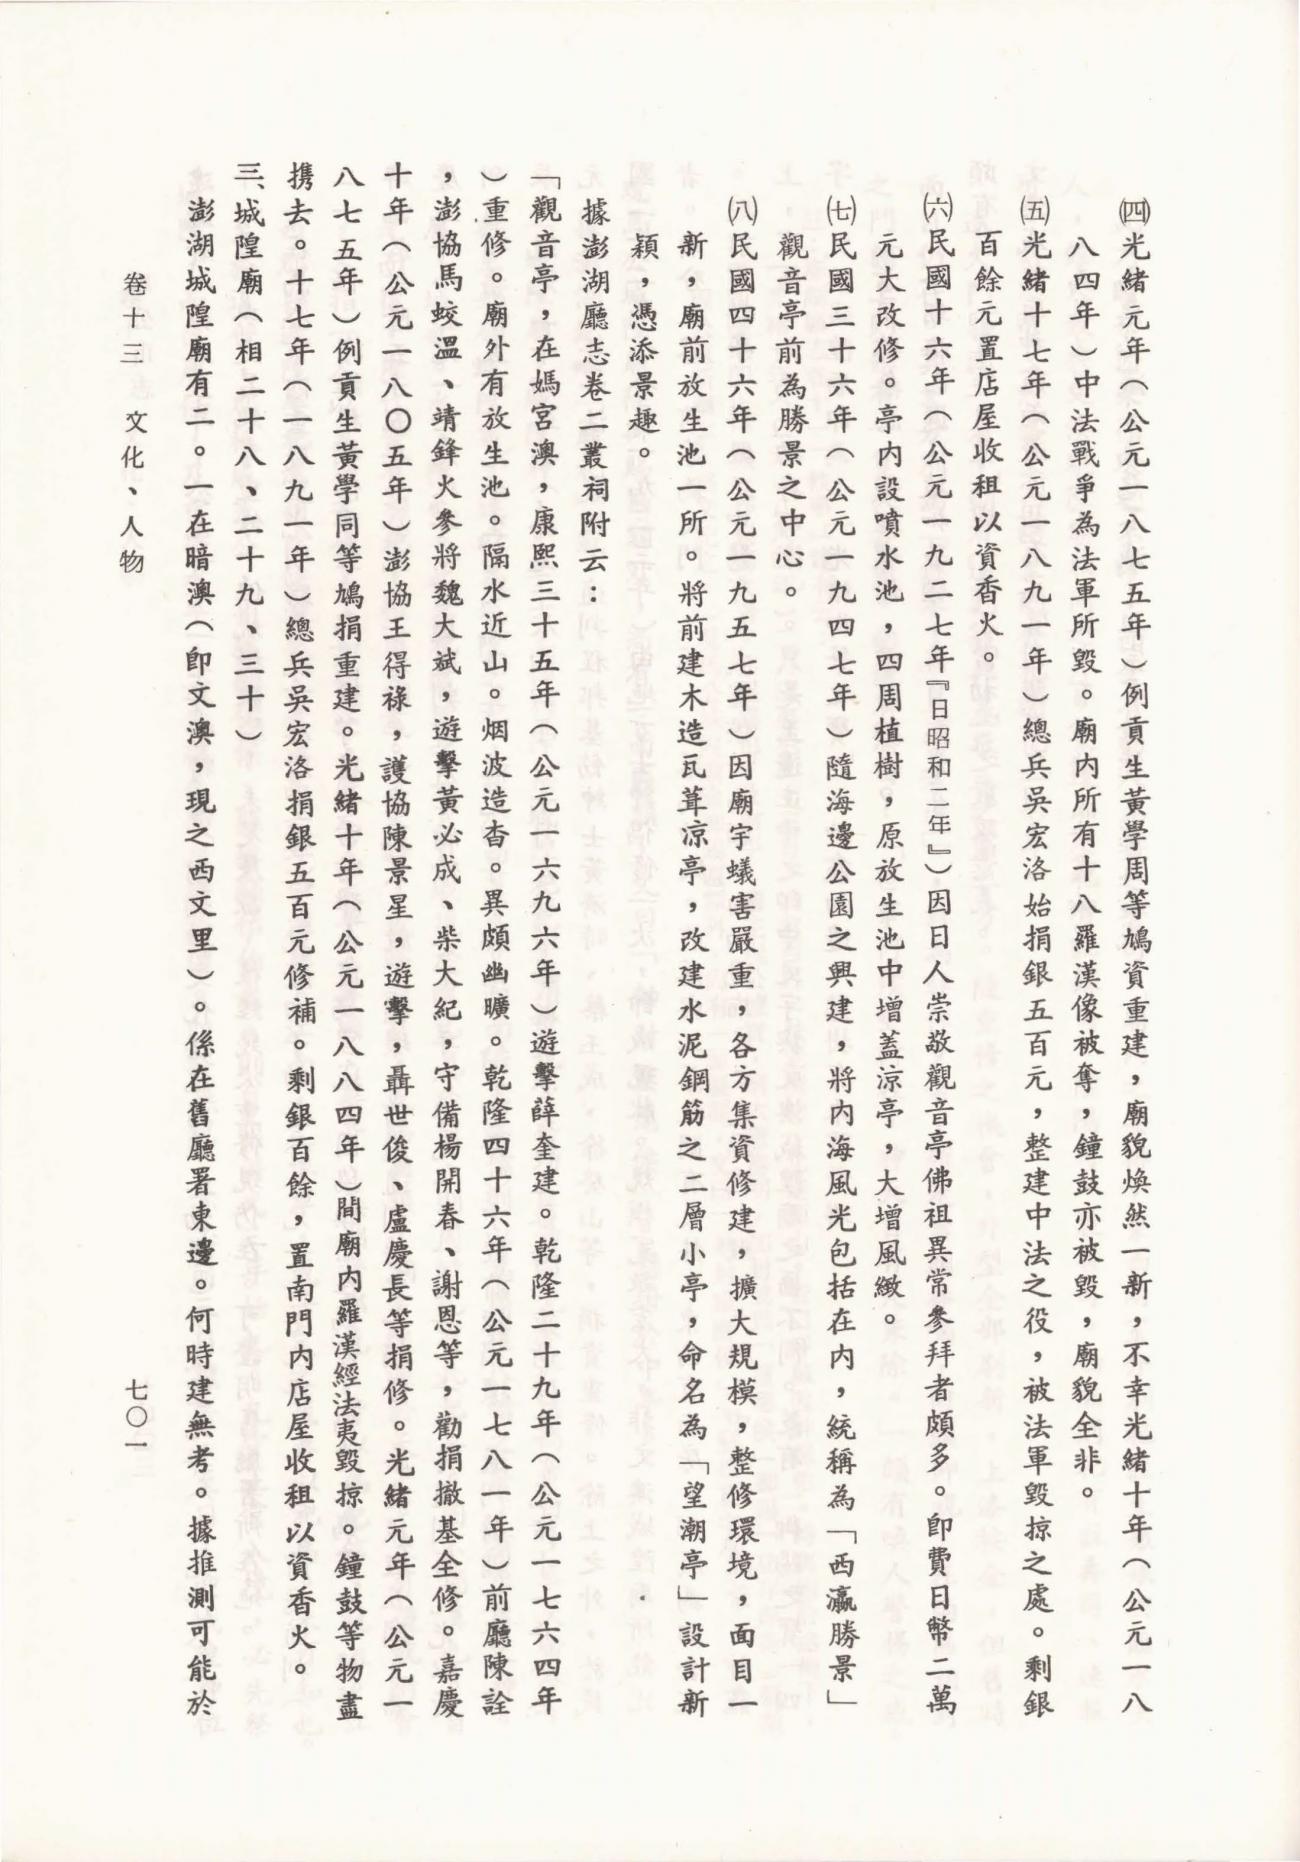 ㈣光緒元年（公元一八七五年）例貢生黃學周等鳩資重建，廟貌煥然一新，不幸光緒十年（公元一八
八四年）中法戰爭為法軍所毀。廟內所有十八羅漢像被奪，鐘鼓亦被毀，廟貌全非。
㈤光緒十七年（公元一八九一年）總兵吳宏洛始捐銀五百元，整建中法之役，被法軍毀掠之處。剩銀
百餘元置店屋收租以資香火。
㈥民國十六年（公元一九二七年『日昭和二年』）因日人崇敬觀音亭佛祖異常參拜者頗多。即費日幣二萬
元大改修。亭內設噴水池，四周植樹，原放生池中增蓋涼亭，大增風緻。
㈦民國三十六年（公元一九四七年）隨海邊公園之興建，將內海風光包括在內，統稱為「西瀛勝景」
觀音亭前為勝景之中心。
㈧民國四十六年（公元一九五七年）因廟宇蟻害嚴重，各方集資修建，擴大規模，整修環境，面目一
新，廟前放生池一所。將前建木造瓦葺凉亭，改建水泥鋼筋之二層小亭，命名為「望潮亭」設計新
穎，憑添景趣。
據澎湖廳志卷二叢祠附云：
「觀音亭，在媽宮澳，康熙三十五年（公元一六九六年）遊擊薛奎建。乾隆二十九年（公元一七六四年
）重修。廟外有放生池。隔水近山。烟波造杳。異頗幽曠。乾隆四十六年（公元一七八一年）前廳陳詮
，澎協馬蛟溫、靖鋒火參將魏大斌，遊擊黃必成、柴大紀，守備楊開春、謝恩等，勸捐撤基全修。嘉慶
十年（公元一八〇五年）澎協王得祿，護協陳景星，遊擊，聶世俊、盧慶長等捐修。光緒元年（公元一
八七五年）例貢生黃學同等鳩捐重建。光緒十年（公元一八八四年）間廟內羅漢經法夷毀掠。鐘鼓等物盡
携去。十七年（一八九一年）總兵吳宏洛捐銀五百元修補。剩銀百餘，置南門內店屋收租以資香火。
三、城隍廟（相二十八、二十九、三十）
澎湖城隍廟有二。一在暗澳（即文澳，現之西文里）。係在舊廳署東邊。何時建無考。據推測可能於
卷十三　文化、人物
七〇一